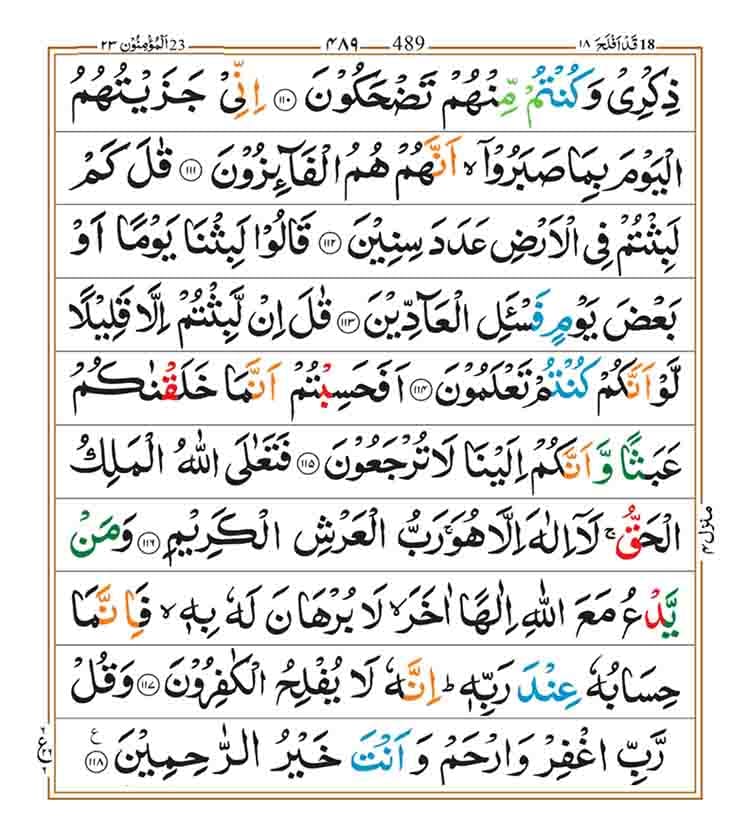 18 قَدْ اَفْلَحَ ١٨ 489 ٤٨٩ 23 اَلْمُؤْمِنُوْن ٢٣
ذِكْرِىْ وَكُنْتُمْ مِّنْهُمْ تَضْحَكُوْنَ ﴿١١٠﴾ اِنِّىْ جَزَيْتُهُمُ
الْيَوْمَ بِمَا صَبَرُوْۤا ۙ اَنَّهُمْ هُمُ الْفَآئِزُوْنَ ﴿١١١﴾ قٰلَ كَمْ
لَبِثْتُمْ فِى الْاَرْضِ عَدَدَ سِنِيْنَ ﴿١١٢﴾ قَالُوْا لَبِثْنَا يَوْمًا اَوْ
بَعْضَ يَوْمٍ فَسْئَلِ الْعَآدِّيْنَ ﴿١١٣﴾ قٰلَ اِنْ لَّبِثْتُمْ اِلَّا قَلِيْلًا
لَّوْ اَنَّكُمْ كُنْتُمْ تَعْلَمُوْنَ ﴿١١٤﴾ اَفَحَسِبْتُمْ اَنَّمَا خَلَقْنٰكُمْ
عَبَثًا وَّاَنَّكُمْ اِلَيْنَا لَا تُرْجَعُوْنَ ﴿١١٥﴾ فَتَعٰلَى اللّٰهُ الْمَلِكُ
الْحَقُّ ۚ لَاۤ اِلٰهَ اِلَّا هُوَ ۚ رَبُّ الْعَرْشِ الْكَرِيْمِ ﴿١١٦﴾ وَمَنْ
منزل ٤
يَّدْعُ مَعَ اللّٰهِ اِلٰهًا اٰخَرَ ۙ لَا بُرْهَانَ لَهٗ بِهٖ ۙ فَاِنَّمَا
حِسَابُهٗ عِنْدَ رَبِّهٖ ؕ اِنَّهٗ لَا يُفْلِحُ الْكٰفِرُوْنَ ﴿١١٧﴾ وَقُلْ
رَّبِّ اغْفِرْ وَارْحَمْ وَاَنْتَ خَيْرُ الرّٰحِمِيْنَ ﴿١١٨﴾ ع